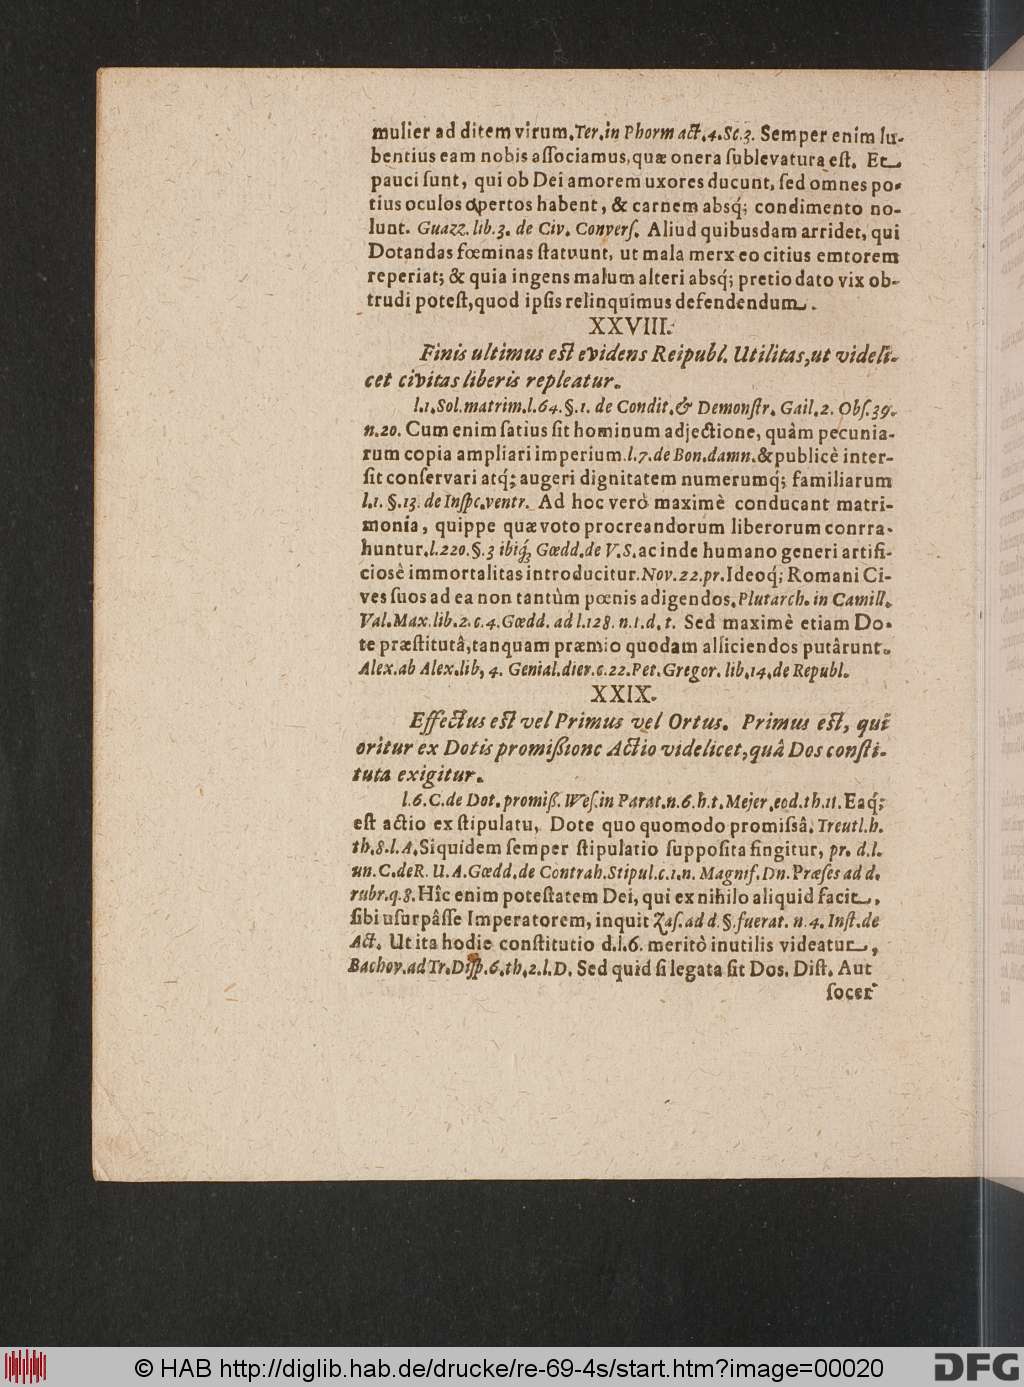 mulier ad ditem virum. Ter. in Phorm act. 4. Sc. 3. Semper enim lu-
bentius eam nobis aſſociamus, quæ onera ſublevatura eſt. Et
pauci ſunt, qui ob Dei amorem uxores ducunt, ſed omnes po-
tius oculos apertos habent, & carnem absq́; condimento no-
lunt. Guazz. lib. 3. de Civ. Converſ. Aliud quibusdam arridet, qui
Dotandas fœminas ſtatuunt, ut mala merx eo citius emtorem
reperiat; & quia ingens malum alteri absq́; pretio dato vix ob-
trudi poteſt, quod ipſis relinquimus defendendum.
XXVIII.
Finis ultimus eſt evidens Reipubl. Utilitas, ut videli-
cet civitas liberis repleatur.
l. 1. Sol. matrim. l. 64. §. 1. de Condit. & Demonſtr. Gail. 2. Obſ. 39.
n. 20. Cum enim ſatius ſit hominum adjectione, quàm pecunia-
rum copia ampliari imperium. l. 7. de Bon. damn. & publicè inter-
ſit conſervari atq́; augeri dignitatem numerumq́; familiarum
l. 1. §. 13. de Inſpc. ventr. Ad hoc verò maximè conducant matri-
monia, quippe quæ voto procreandorum liberorum conrra-
huntur. l. 220. §. 3 ibiq́; Gœdd. de V. S. ac inde humano generi artifi-
ciosè immortalitas introducitur. Nov. 22. pr. Ideoq́; Romani Ci-
ves ſuos ad ea non tantùm pœnis adigendos. Plutarch. in Camill.
Val. Max. lib. 2. c. 4. Gœdd. ad l. 128. n. 1. d. t. Sed maximè etiam Do-
te præſtitutâ, tanquam præmio quodam alliciendos putârunt.
Alex. ab Alex. lib, 4. Genial. dier. c. 22. Pet. Gregor. lib. 14. de Republ.
XXIX.
Effectus eſt vel Primus vel Ortus. Primus eſt, qui
oritur ex Dotis promiſſionc Actio videlicet, quâ Dos conſti-
tuta exigitur.
l. 6. C. de Dot. promiß. Weſ. in Parat. n. 6. h. t. Mejer. eod. th. 11. Eaq́;
eſt actio ex ſtipulatu, Dote quo quomodo promiſsâ. Treutl. h.
th. 8. l. A. Siquidem ſemper ſtipulatio ſuppoſita fingitur, pr. d. l.
un. C. de R. U. A. Gœdd. de Contrah. Stipul. c. 1. n. Magnif. Dn. Præſes ad d.
rubr. q. 8. Hîc enim poteſtatem Dei, qui ex nihilo aliquid facit,
ſibi uſurpâſſe Imperatorem, inquit Zaſ. ad d. §. fuerat. n. 4. Inſt. de
Act. Ut ita hodie conſtitutio d. l. 6. meritò inutilis videatur,
Bachov. ad Tr. Diſp. 6. th. 2. l. D. Sed quid ſi legata ſit Dos. Diſt. Aut
ſocer
© HAB http://diglib.hab.de/drucke/re-69-4s/start.htm?image=00020
DFG